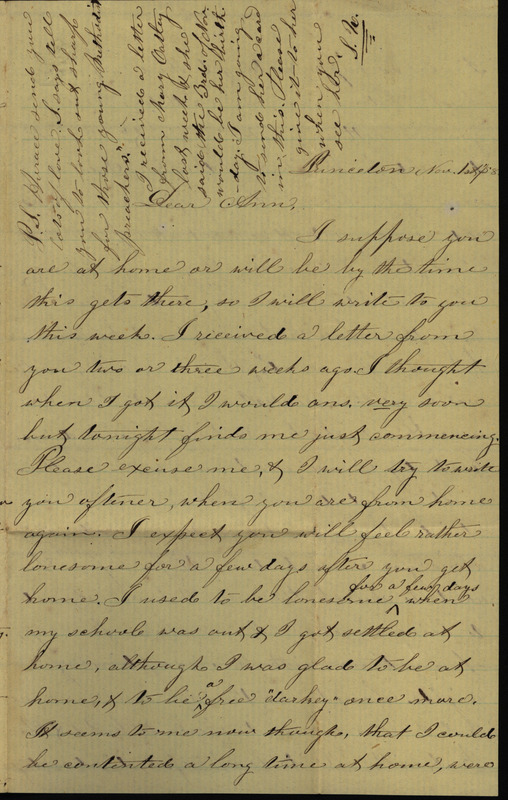 Princeton Nov. 1st
Dear Ann,
I suppose you
are at home or will be by the time
this gets there, so I will write to you
this week. I received a letter from
you two or three weeks ago. I thought
when I got it I would ans. very soon
but tonight finds me just commencing.
Please excuse me, & I will try to write
you oftener, when you are from home
again. I expect you will feel rather
lonesome for a few days after you get
home. I used to be lonesome for a few days when
my school was out & I got settled at
home, although I was glad to be at
home, & to be a free "darkey" once more.
It seems to me now though, that I could
be contented a long time at home, were
P.S. Horace sends you
lots of love. & says tell
you to look out sharp
for those young Methodist
preachers."
I received a letter
from Mary Oatley
last week & she
said the 3rd. of Nov.
would be her birth-
day. I am going
to send her a card
in this. Please
give it to her
when you
see her.